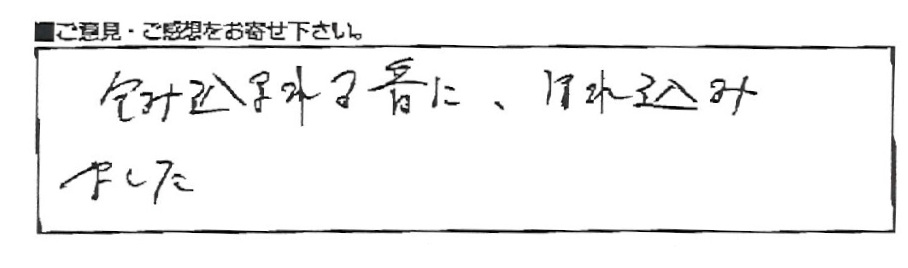 ■ご意見・ご感想をお寄せ下さい。
包み込まれる音に、ほれ込み
ました